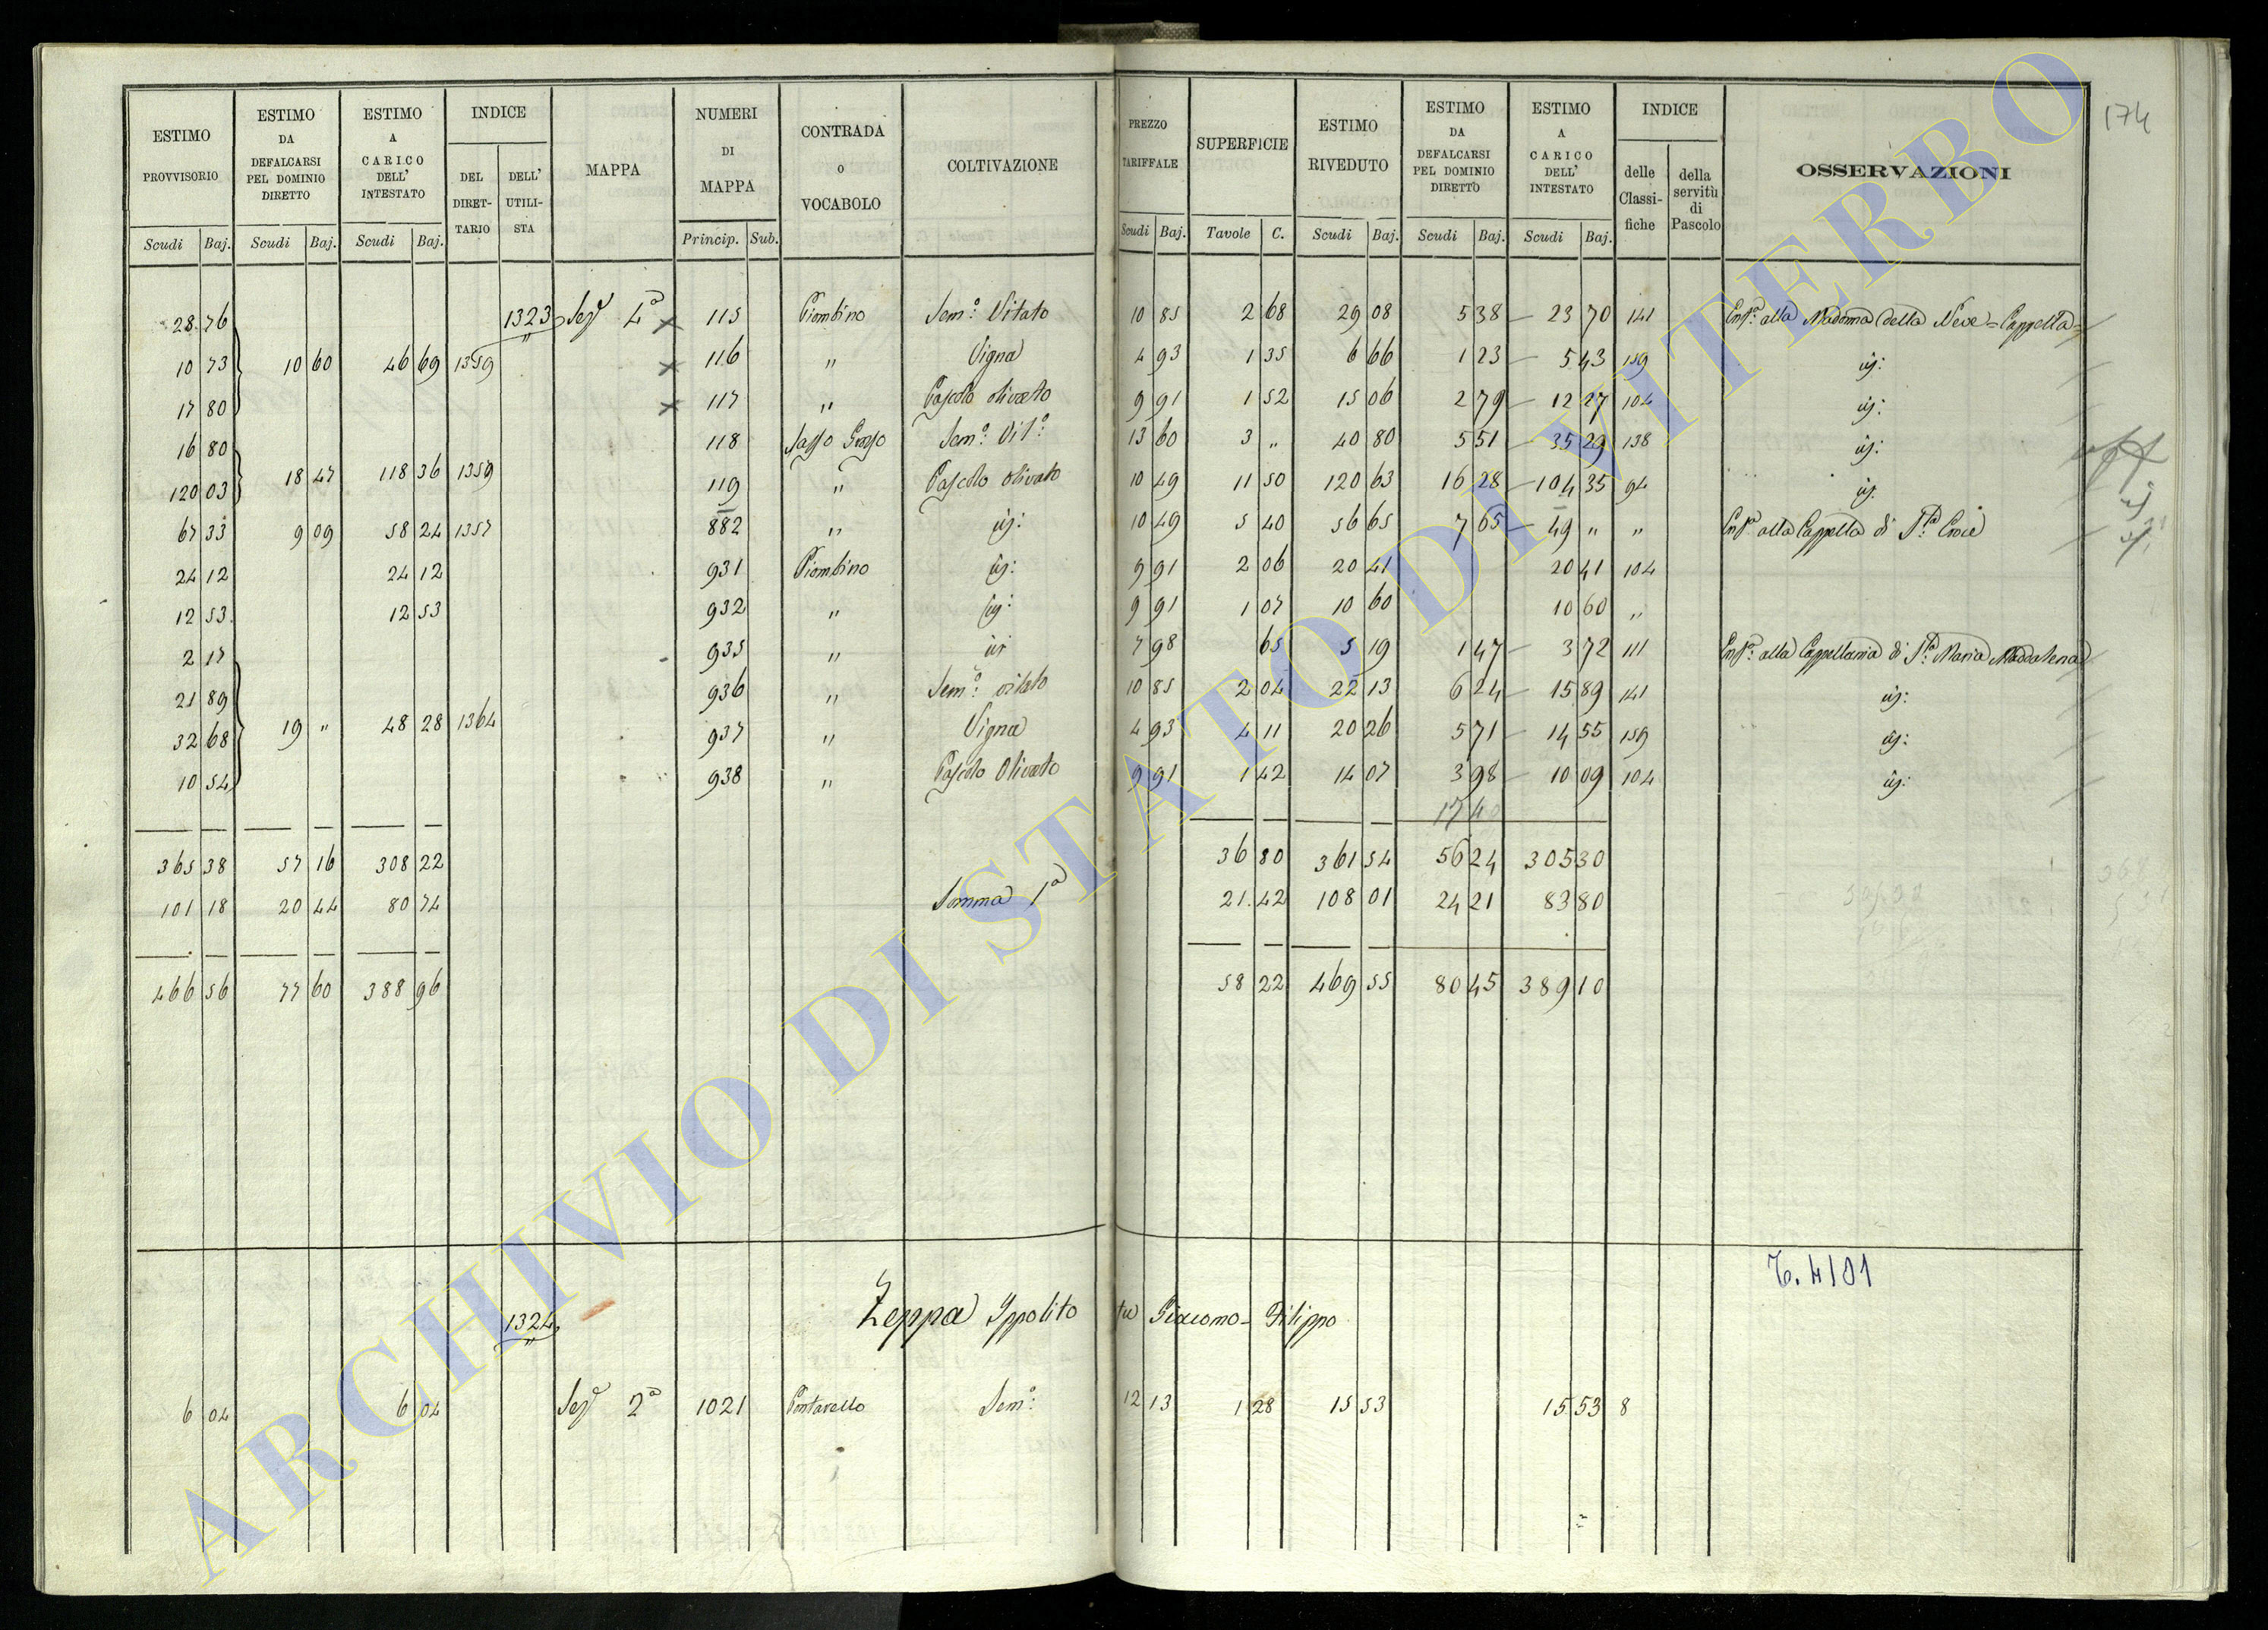 174
ESTIMO PROVVISORIO | ESTIMO DA DEFALCARSI PEL DOMINIO DIRETTO | ESTIMO A CARICO DELL' INTESTATO | INDICE | MAPPA | NUMERI DI MAPPA | CONTRADA o VOCABOLO | COLTIVAZIONE | PREZZO TARIFFALE | SUPERFICIE | ESTIMO RIVEDUTO | ESTIMO DA DEFALCARSI PEL DOMINIO DIRETTO | ESTIMO A CARICO DELL' INTESTATO | INDICE | OSSERVAZIONI
DEL DIRETTARIO | DELL' UTILISTA | delle Classifiche | della servitù di Pascolo
Scudi | Baj. | Scudi | Baj. | Scudi | Baj. | Princip. | Sub. | Scudi | Baj. | Tavole | C. | Scudi | Baj. | Scudi | Baj. | Scudi | Baj.
28 76 | 1323 | Sezᵉ 4ª | 115 | Piombino | Semº: Vitato | 10 85 | 2 68 | 29 08 | 5 38 | 23 70 | 141 | Enfª: alla Madonna della Neve = Cappella =
10 73 | 10 60 | 46 69 | 1359 | 116 | " | Vigna | 4 93 | 1 35 | 6 66 | 1 23 | 5 43 | 159 | üj:
17 80 | 117 | " | Pascolo olivato | 9 91 | 1 52 | 15 06 | 2 79 | 12 27 | 104 | üj:
16 80 | 118 | Sasso Grosso | Semº: Vitº: | 13 60 | 3 " | 40 80 | 5 51 | 35 29 | 138 | üj:
120 03 | 18 47 | 118 36 | 1359 | 119 | " | Pascolo olivato | 10 49 | 11 50 | 120 63 | 16 28 | 104 35 | 94 | üj.
67 33 | 9 09 | 58 24 | 1357 | 882 | " | üj: | 10 49 | 5 40 | 56 65 | 7 65 | 49 " | " | Enfª alla Cappella di Sª: Croce
24 12 | 24 12 | 931 | Piombino | üj: | 9 91 | 2 06 | 20 41 | 20 41 | 104
12 53 | 12 53 | 932 | " | üj: | 9 91 | 1 07 | 10 60 | 10 60 | "
2 17 | 935 | " | üj | 7 98 | 65 | 5 19 | 1 47 | 3 72 | 111 | Enfª: alla Cappellania di Sª: Maria Maddalena
21 89 | 936 | " | Semº: vitato | 10 85 | 2 04 | 22 13 | 6 24 | 15 89 | 141 | üj:
32 68 | 19 " | 48 28 | 1364 | 937 | " | Vigna | 4 93 | 4 11 | 20 26 | 5 71 | 14 55 | 159 | üj:
10 54 | 938 | " | Pascolo Olivato | 9 91 | 1 42 | 14 07 | 3 98 | 10 09 | 104 | üj:
365 38 | 57 16 | 308 22 | 36 80 | 361 54 | 56 24 | 305 30
101 18 | 20 44 | 80 74 | Somma 1ª | 21 42 | 108 01 | 24 21 | 83 80
466 56 | 77 60 | 388 96 | 58 22 | 469 55 | 80 45 | 389 10
T. 4101
1324 | Zeppa Ippolito fu Giacomo-Filippo
6 04 | 6 04 | Sezᵉ 2ª | 1021 | Pontarello | Semº: | 12 13 | 1 28 | 15 53 | 15 53 | 8
ARCHIVIO DI STATO DI VITERBO